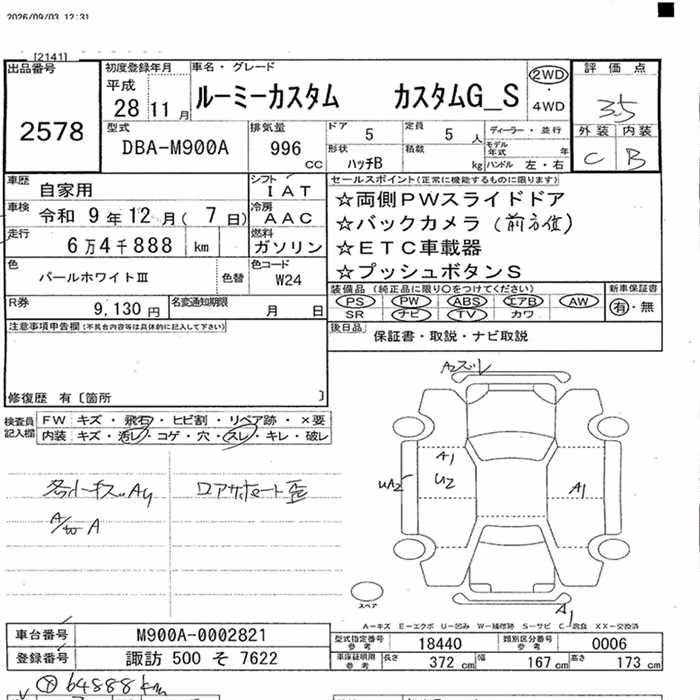 2026/09/03 12:31
[2141]
出品番号
2578
初度登録年月
平成
28 11 月
車名・グレード
ルーミーカスタム カスタムG_S
2WD
・
4WD
評価点
3.5
外装 内装
C B
型式
DBA-M900A
排気量
996 CC
ドア 5
定員 5 人
形状 ハッチB
積載 kg
ディーラー・並行
モデル年式 年
ハンドル 左・右
車歴 自家用
シフト IAT
車検 令和 9年 12月( 7日)
冷房 AAC
走行 6万4千888 km
燃料 ガソリン
色 パールホワイトⅢ
色替
色コード W24
R券 9,130 円
名変通知期限 月 日
セールスポイント(正常に機能するものに限ります)
☆両側PWスライドドア
☆バックカメラ
☆ETC車載器
☆プッシュボタンS
装備品 (純正品に限り○をつけてください)
PS PW ABS エアB AW
SR ナビ TV カワ
新車保証書
有・無
後日品 保証書・取説・ナビ取説
注意事項申告欄(不具合内容等は具体的に記入して下さい)
修復歴 有〔箇所 〕
検査員記入欄
FW キズ・飛石・ヒビ割・リペア跡・×要
内装 キズ・汚レ・コゲ・穴・スレ・キレ・破レ
A2ズレ
A1
U2
UA2
A1
A1
スペア
A-キズ E-エクボ U-凹み W-補修跡 S-サビ C-腐食 XX-交換済
車台番号 M900A-0002821
登録番号 諏訪 500 そ 7622
型式指定番号参考 18440
類別区分番号参考 0006
車庫証明用参考 長さ 372 cm 幅 167 cm 高さ 173 cm
64888km